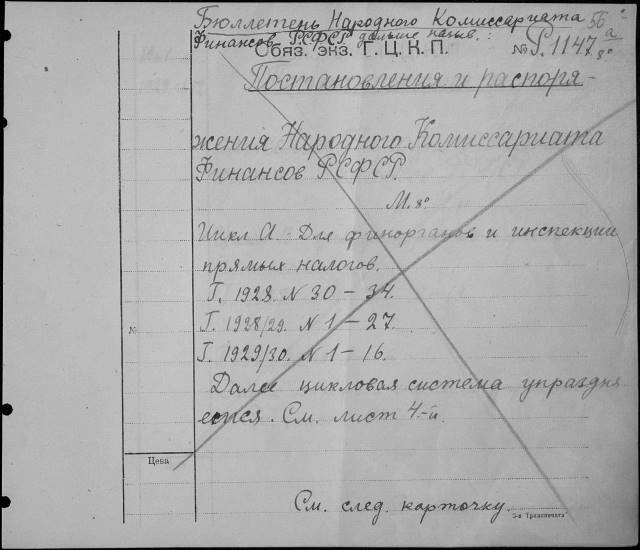 Бюллетень Народного Комиссариата 56
Финансов РСФСР дальше назыв.:
Обяз. экз. Г. Ц. К. П. № P. 1147 а/8°
Постановления и распоря-
жения Народного Комиссариата
Финансов РСФСР.
М. 8°
Цикл А - Для финорганов и инспекции
прямых налогов.
Г. 1928. N 30 - 34.
№ Г. 1928/29. N 1 - 27.
Г. 1929/30. N 1 - 16.
Далее цикловая система упраздня
ется. См. лист 4-й.
Цена
См. след. карточку.
3-я "Транспечать"